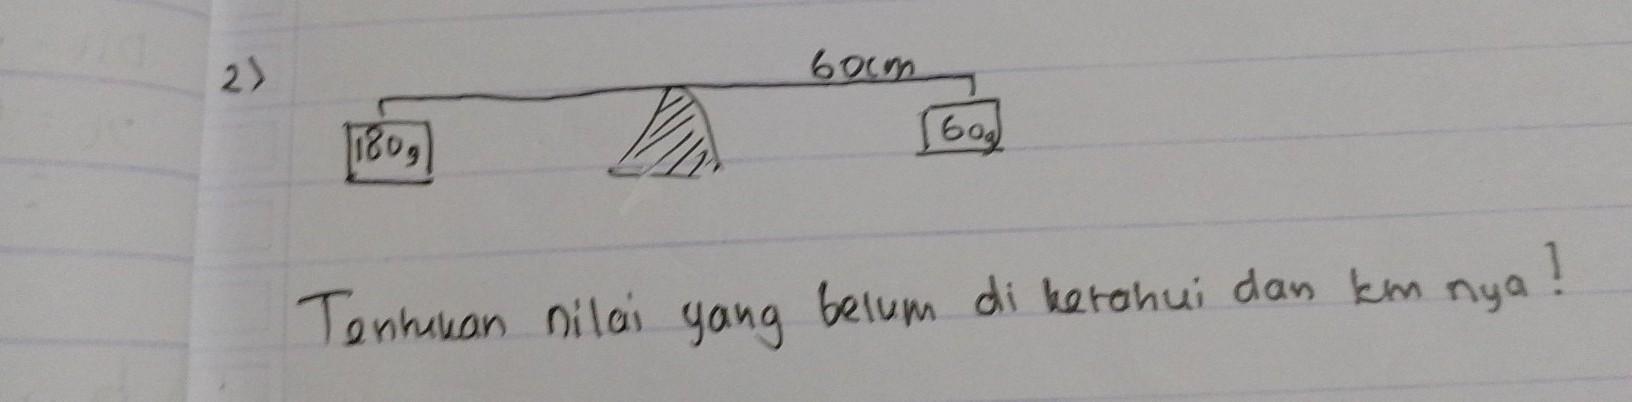 2)
60cm
180g
60g
Tentukan nilai yang belum di ketahui dan km nya!